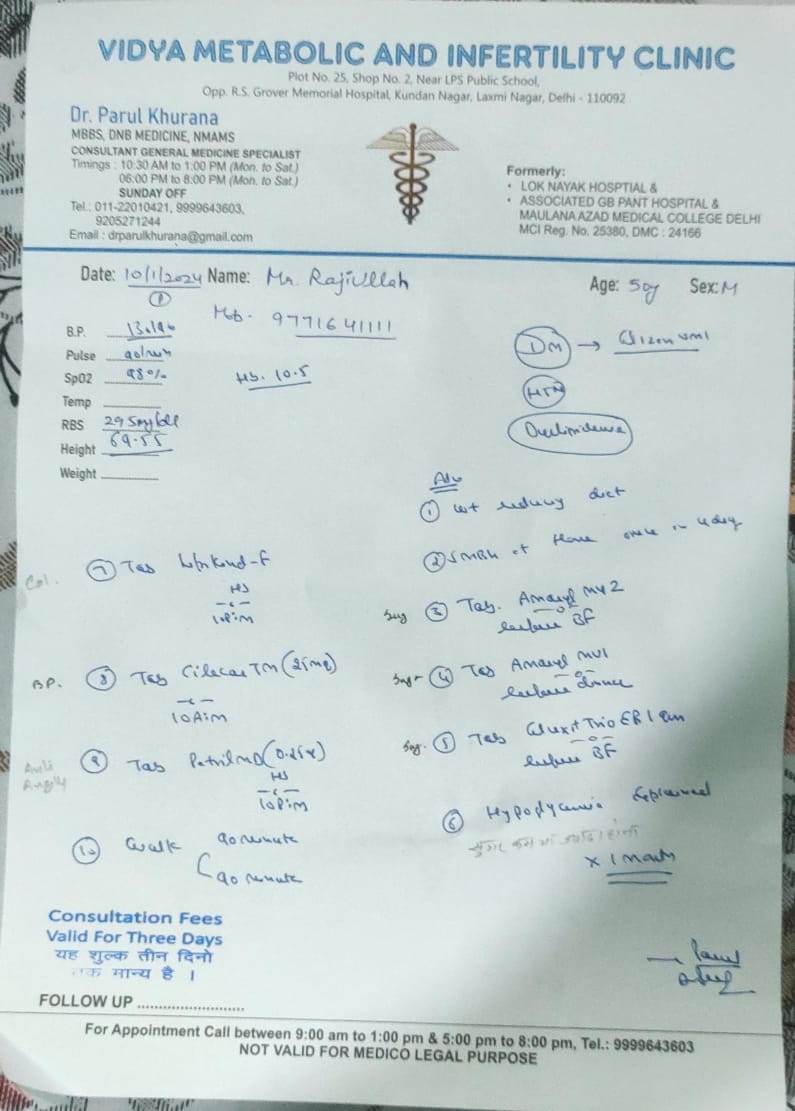 VIDYA METABOLIC AND INFERTILITY CLINIC
Plot No. 25, Shop No. 2, Near LPS Public School,
Opp. R.S. Grover Memorial Hospital, Kundan Nagar, Laxmi Nagar, Delhi - 110092
Dr. Parul Khurana
MBBS, DNB MEDICINE, NMAMS
CONSULTANT GENERAL MEDICINE SPECIALIST
Timings : 10:30 AM to 1:00 PM (Mon. to Sat.)
06:00 PM to 8:00 PM (Mon. to Sat.)
SUNDAY OFF
Tel.: 011-22010421, 9999643603,
9205271244
Email : drparulkhurana@gmail.com
Formerly:
• LOK NAYAK HOSPTIAL &
• ASSOCIATED GB PANT HOSPITAL &
MAULANA AZAD MEDICAL COLLEGE DELHI
MCI Reg. No. 25380, DMC : 24166
Date: 10/1/2024 Name: Mr. Rajiullah Age: 50y Sex: M
①
Mob. 97716 41111
B.P.
Pulse
SpO2 98%
Hb. 10.5
Temp
RBS
69.55
Height
Weight
DM →
HTN
Adv
① diet
② SMBG at Home once in
Sug ③ Tab. Amaryl MV2
before BF
Sug ④ Tab Amaryl MV1
before dinner
Sug. ⑤ Tab Trio ER 1
before BF
⑥ Explained
x 1 month
Col. ⑦ Tab
HS
10 Pim
B.P. ⑧ Tab Cilacar TM
10 Aim
Anti
⑨ Tab Petril MD (0.25x)
HS
10 Pim
⑩ Walk 40 minute
40 minute
Consultation Fees
Valid For Three Days
यह शुल्क तीन दिनो
तक मान्य है ।
FOLLOW UP
For Appointment Call between 9:00 am to 1:00 pm & 5:00 pm to 8:00 pm, Tel.: 9999643603
NOT VALID FOR MEDICO LEGAL PURPOSE